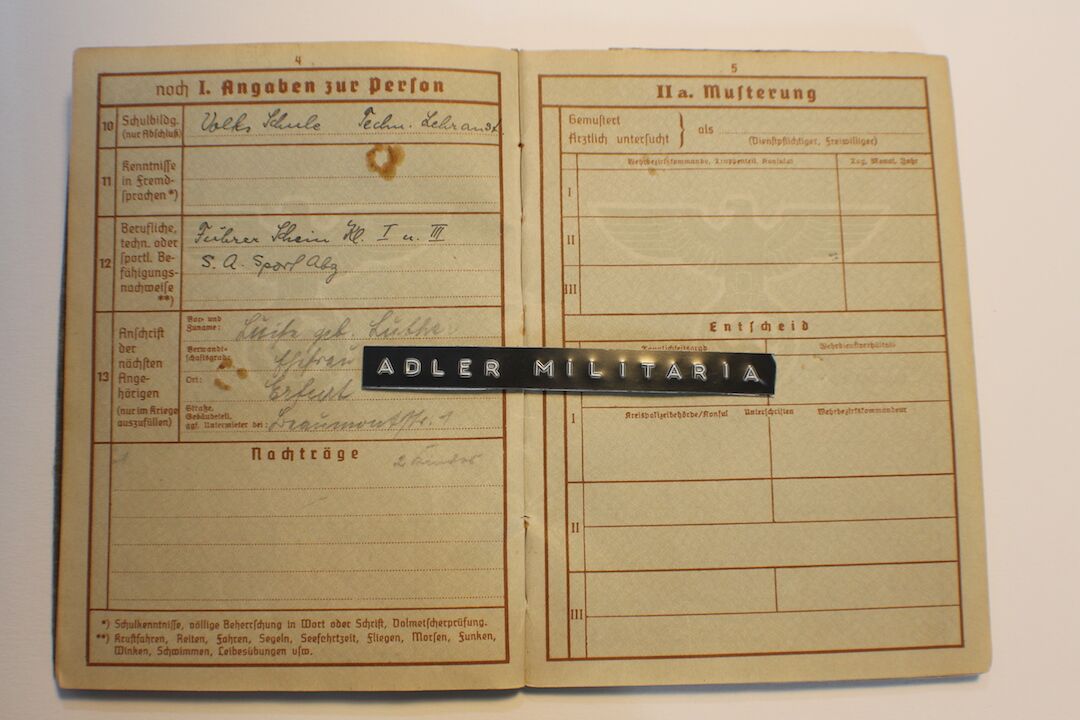 4
noch I. Angaben zur Person
10 Schulbildg. (nur Abschluß)
Volks Schule Techn. Lehranst.
11 Kenntnisse in Fremd-
sprachen *)
12 Berufliche,
techn. oder
sportl. Be-
fähigungs-
nachweise
**)
Führer Schein Kl. I u. III
S. A. Sport Abz
13 Anschrift
der
nächsten
Ange-
hörigen
(nur im Kriege
auszufüllen)
Vor- und
Zuname: Luise geb. Luther
Verwandt-
schaftsgrad: Ehefrau
Ort: Erfurt
Straße,
Gebäudeteil,
ggf. Untermieter bei: Beaumontstr. 1
Nachträge
2 Kinder
*) Schulkenntnisse, völlige Beherrschung in Wort oder Schrift, Dolmetscherprüfung.
**) Kraftfahren, Reiten, Fahren, Segeln, Seefahrtzeit, Fliegen, Morsen, Funken,
Winken, Schwimmen, Leibesübungen usw.
ADLER MILITARIA
5
II a. Musterung
Gemustert
Ärztlich untersucht } als
(Dienstpflichtiger, Freiwilliger)
Wehrbezirkskommando, Truppenteil, Konsulat Tag, Monat, Jahr
I
II
III
Entscheid
Tauglichkeitsgrad Wehrdienstverhältnis
Kreispolizeibehörde/Konsul Unterschriften Wehrbezirkskommandeur
I
II
III